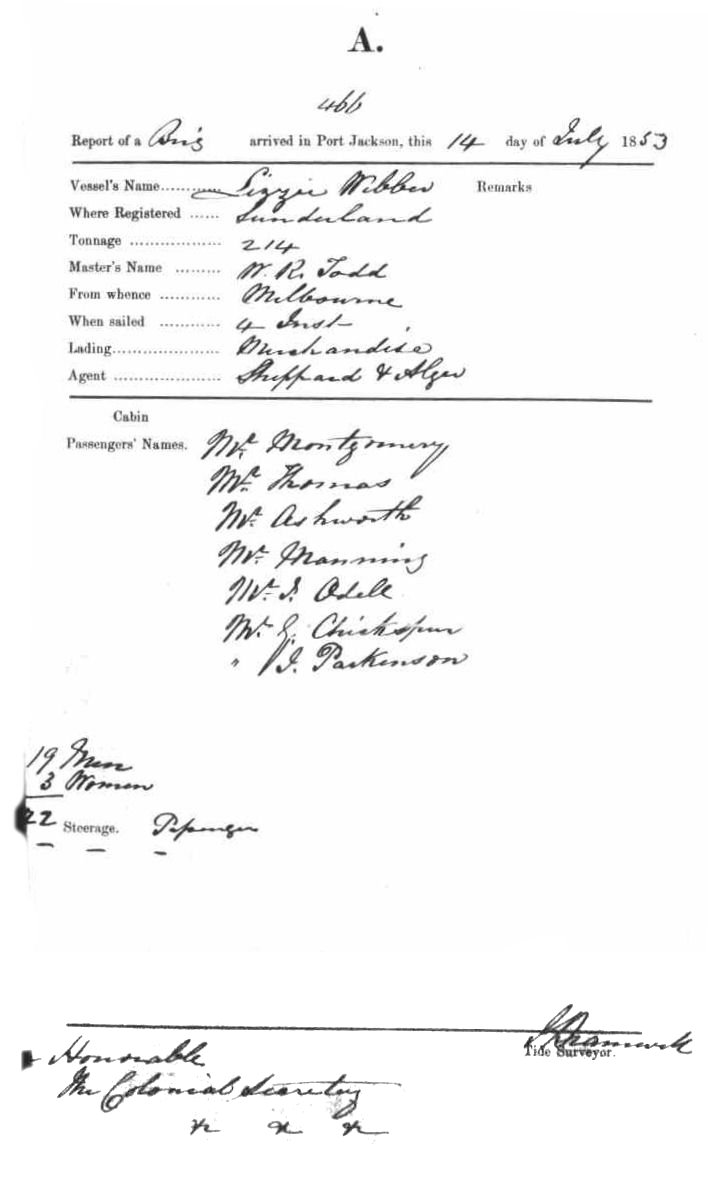 A.
466
Report of a Brig arrived in Port Jackson, this 14 day of July 1853
Vessel's Name............ Lizzie Webber Remarks
Where Registered ...... Sunderland
Tonnage .................. 214
Master's Name ......... W. R. Todd
From whence ............ Melbourne
When sailed ............ 4 Inst
Lading..................... Merchandise
Agent ..................... Sheppard & Alger
Cabin
Passengers' Names. Mr. Montgomery
Mr. Thomas
Mr. Ashworth
Mr. Manning
Mr. J. Odell
Mr. G. Chickspur
" J. Parkinson
19 Men
3 Women
22 Steerage. Passengers
Tide Surveyor.
Honorable
The Colonial Secretary